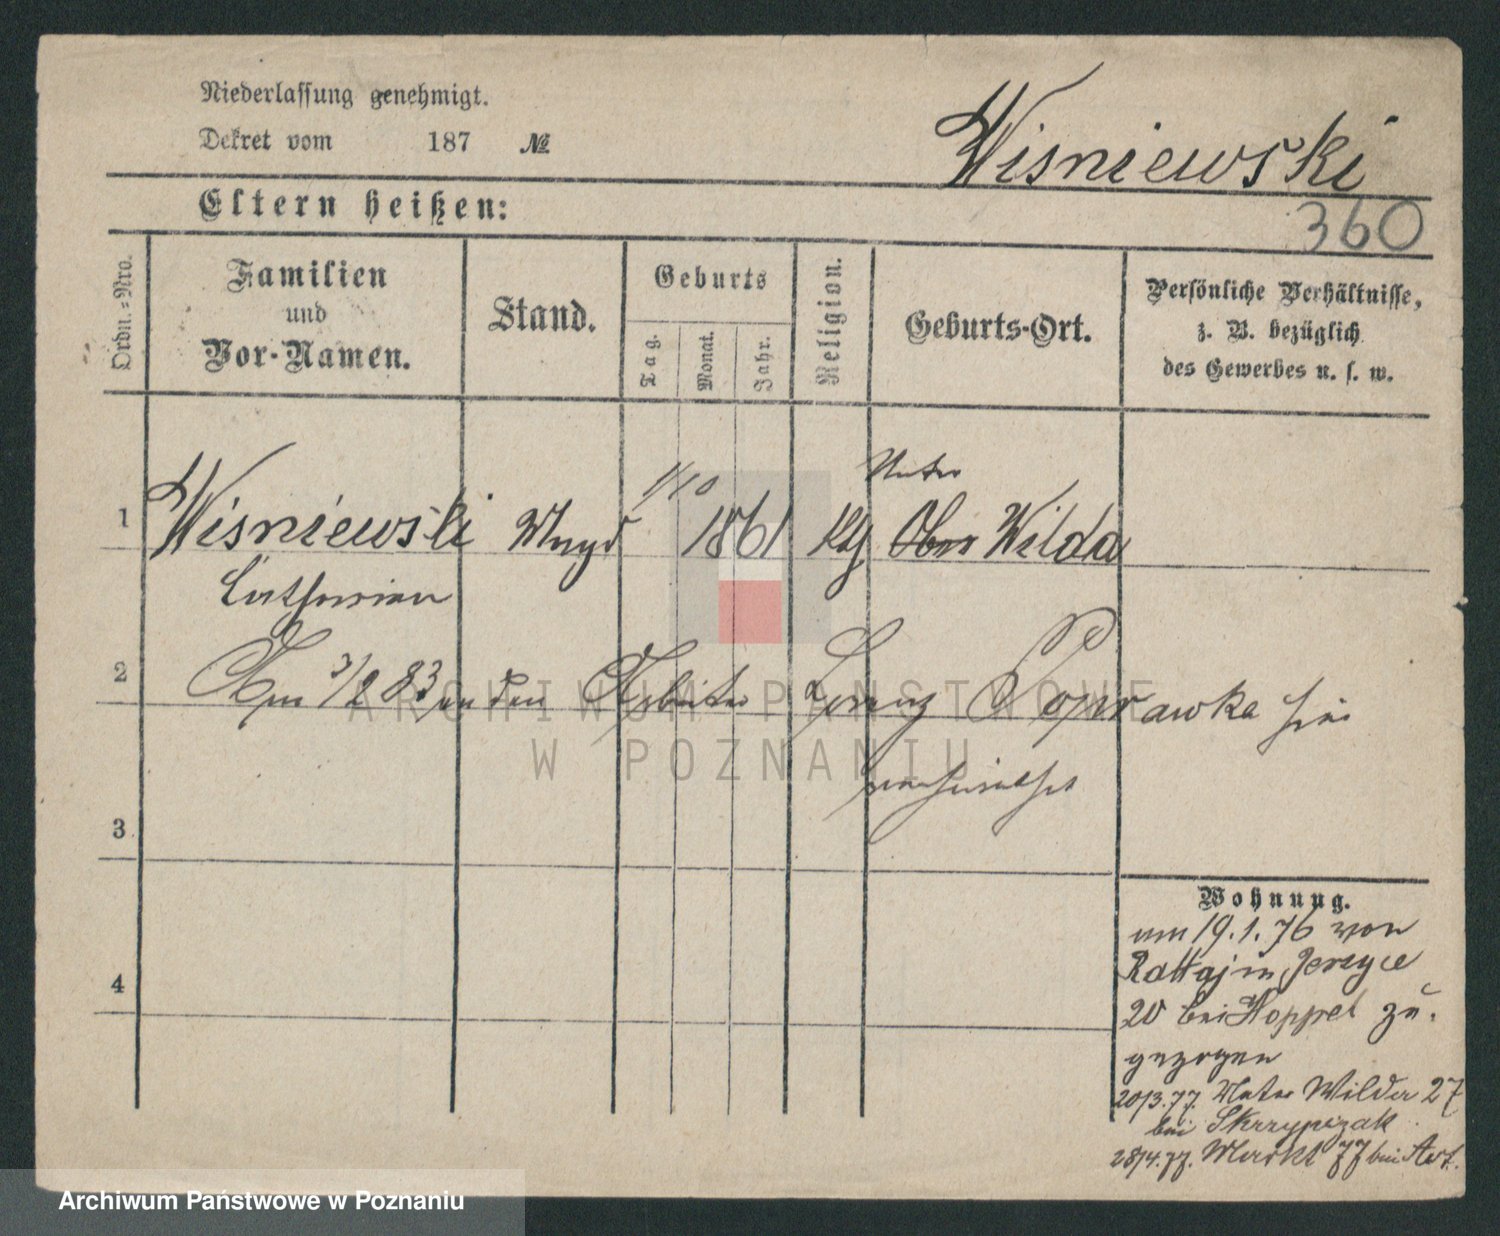 Niederlassung genehmigt.
Dekret vom 187 №
Wisniewski
Eltern heißen:
360
Ordn.-Nro.
Familien
und
Vor-Namen.
Stand.
Geburts
Tag.
Monat.
Jahr.
Religion.
Geburts-Ort.
Persönliche Verhältnisse,
z. B. bezüglich
des Gewerbes u. s. w.
Unter
1/10
1 Wisniewski Magd 1861 Kth Ober Wilda
Catharina
2 Am 3/2 83 an den Arbeiter Lorenz Poprawka hier
verheirathet
3
4
Wohnung.
am 19.1.76 von
Rattaj in Jerzyce
20 bei Koppel zu-
gezogen
20/3.77. Unter Wilda 27
bei Skrzypczak
28/4.77. Markt 77 bei
ARCHIWUM PAŃSTWOWE
W POZNANIU
Archiwum Państwowe w Poznaniu